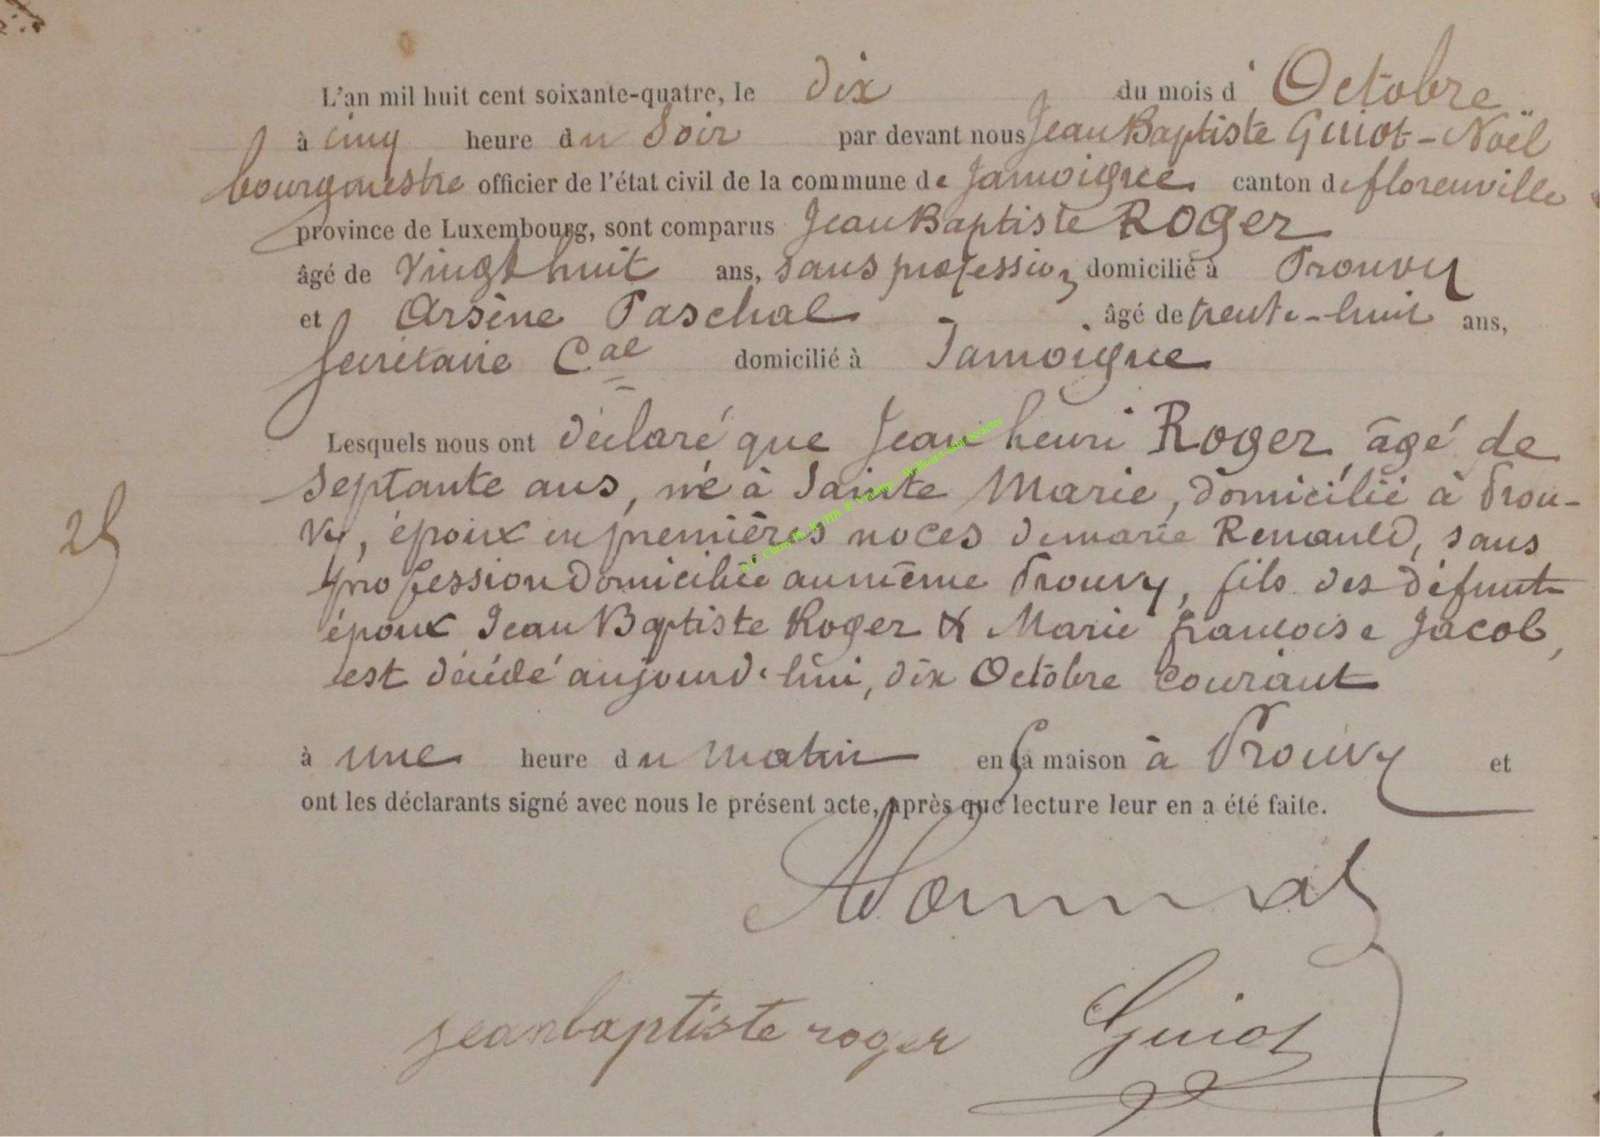 L'an mil huit cent soixante-quatre, le dix du mois d' Octobre
à cinq heure du Soir par devant nous Jean Baptiste Guiot-Noël
bourgmestre officier de l'état civil de la commune de Jamoigne canton de florenville
province de Luxembourg, sont comparus Jean Baptiste ROGER
âgé de vingt huit ans, sans profession domicilié à Prouvy
et Arsène Paschal âgé de trente-huit ans,
secrétaire Cal domicilié à Jamoigne
Lesquels nous ont déclaré que Jean henri Roger âgé de
septante ans, né à Sainte Marie, domicilié à Prou-
vy, époux en premières noces de marie Renauld, sans
profession domiciliée au même Prouvy, fils des défunts
époux Jean Baptiste Roger & Marie françoise Jacob,
est décédé aujourd'hui, dix Octobre courant
25
à une heure du matin en sa maison à Prouvy et
ont les déclarants signé avec nous le présent acte, après que lecture leur en a été faite.
jeanbaptiste roger Guiot